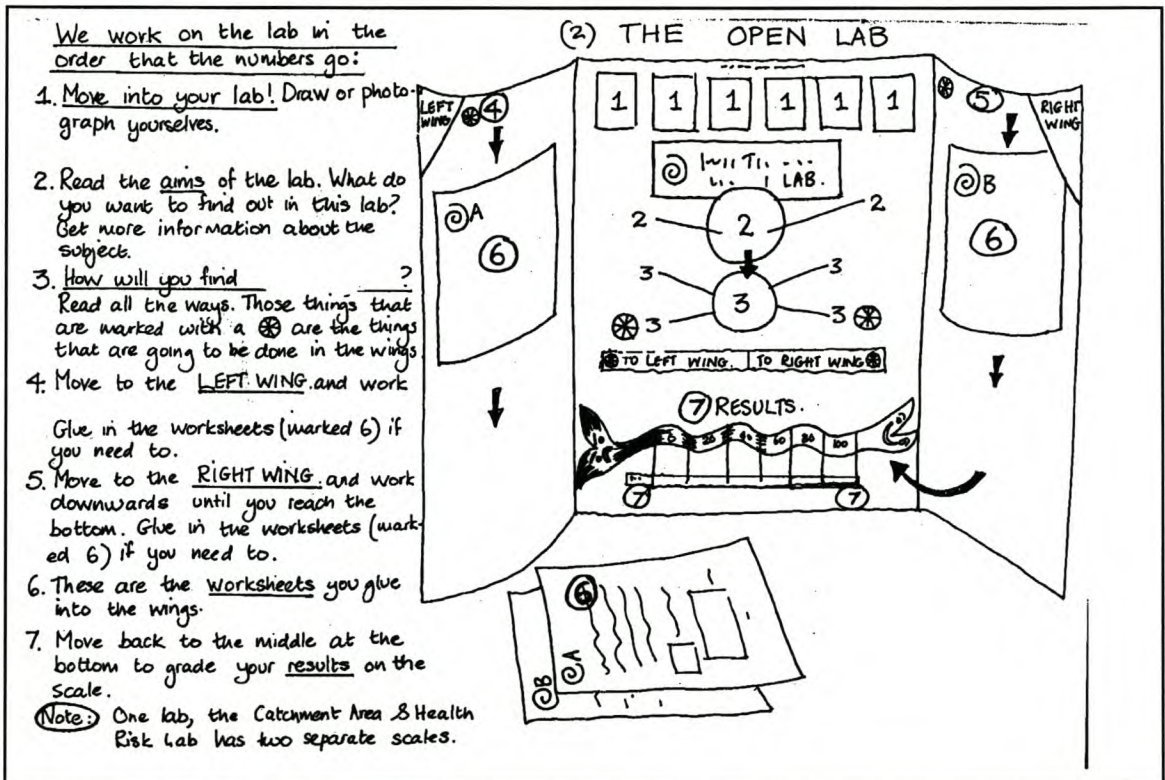 We work on the lab in the
order that the numbers go:
1. Move into your lab! Draw or photo-
graph yourselves.
2. Read the aims of the lab. What do
you want to find out in this lab?
Get more information about the
subject.
3. How will you find ?
Read all the ways. Those things that
are marked with a are the things
that are going to be done in the wings
4. Move to the LEFT WING. and work
Glue in the worksheets (marked 6) if
you need to.
5. Move to the RIGHT WING. and work
downwards until you reach the
bottom. Glue in the worksheets (mark-
ed 6) if you need to.
6. These are the worksheets you glue
into the wings.
7. Move back to the middle at the
bottom to grade your results on the
scale.
Note: One lab, the Catchment Area & Health
Risk Lab has two separate scales.
(2) THE OPEN LAB
LEFT
WING
4
A
6
1 1 1 1 1 1
LAB.
2 2 2
3 3
3 3 3
TO LEFT WING. TO RIGHT WING
7 RESULTS.
0 20 40 60 80 100
7 7
5
RIGHT
WING
B
6
6
A
B